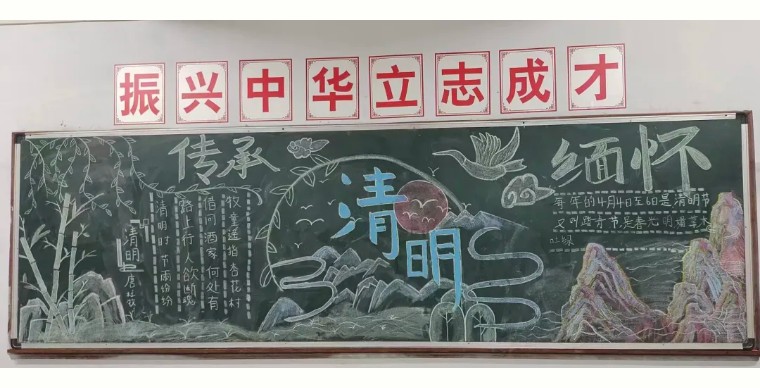 振兴中华立志成才
传承
清明
缅怀
《清明》
唐 
清明时节雨纷纷
路上行人欲断魂
借问酒家何处有
牧童遥指杏花村
每年的4月4日至6日是清明节
又叫踏青节是春光明媚草木
吐绿